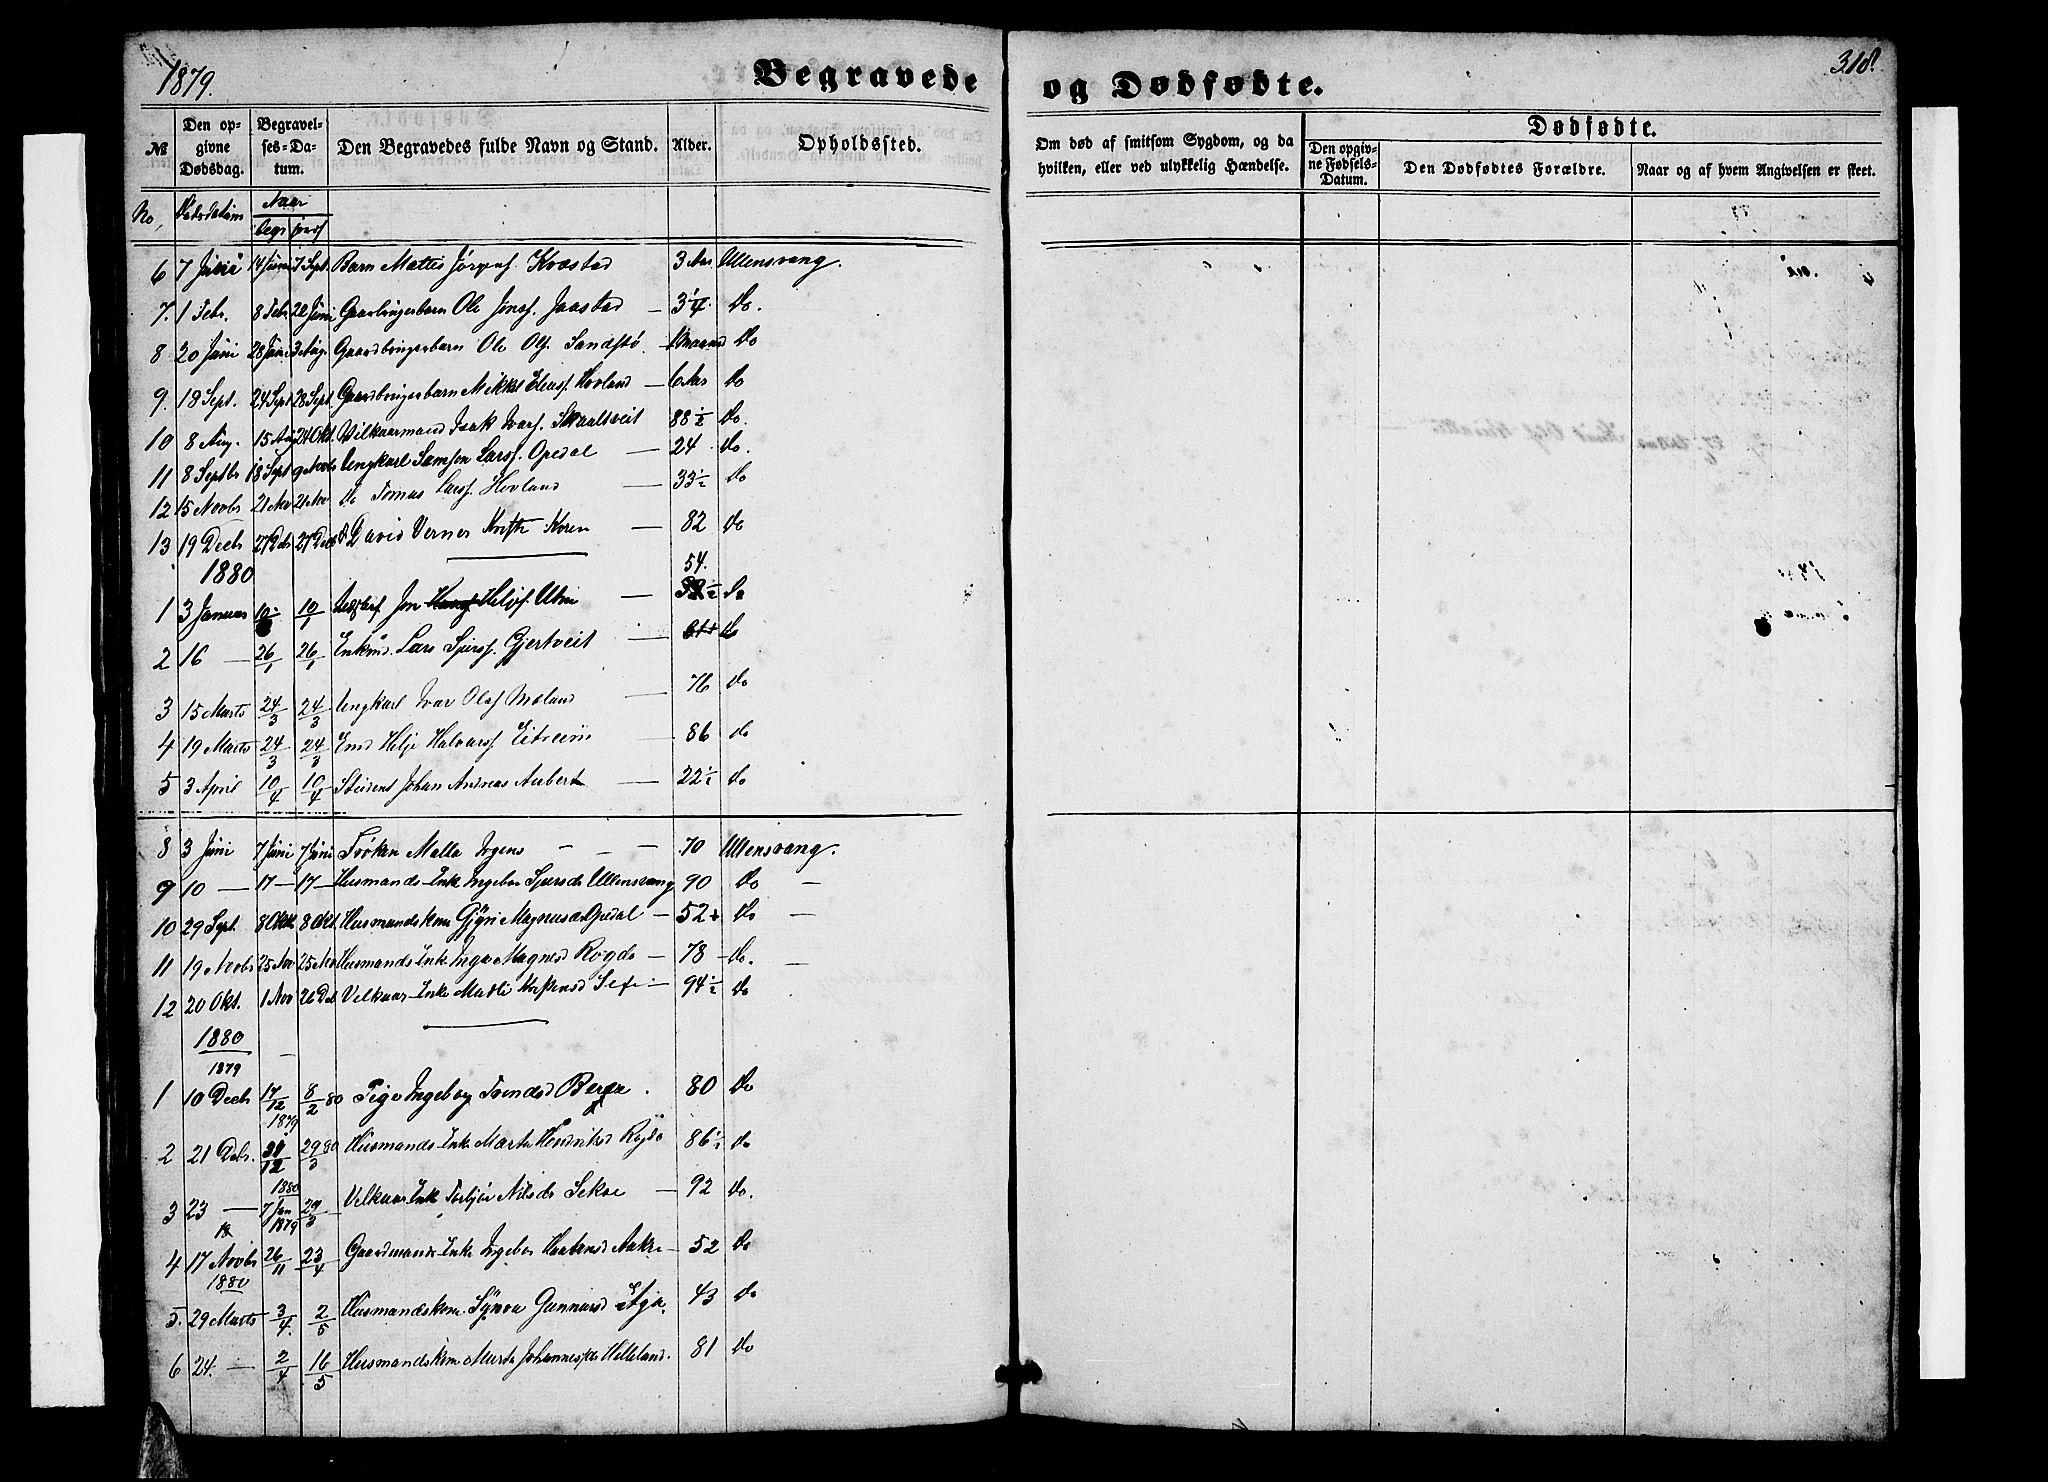 1879.
Begravede
og Dødfødte.
318.
№
Den opgivne Dødsdag.
Begravelses-Datum.
Den Begravedes fulde Navn og Stand.
Alder.
Opholdssted.
Om død af smitsom Sygdom, og da hvilken, eller ved ulykkelig Hændelse.
Dødfødte.
Den opgivne Fødsels-Datum.
Den Dødfødtes Forældre.
Naar og af hvem Angivelsen er skeet.
No, Naar
begr
6 7 Juni 14 Juni 7 Sept. Barn Mattis Jørgens. Kvæstad 3 Aar Ullensvang.
7. 1 Febr. 8 Febr 22 Juni Gaardbrugerbarn Ole Jons. Jaastad — 3 1/4 Do.
8 20 Juni 28 Juni 3 Aug. Gaardbrugerbarn Ole Ols. Sandstø. Maaned Do
9. 18 Sept. 24 Sept 28 Sept. Gaardbrugerbarn Mikkel Hovland — 6 Aar Do
10 8 Aug. 15 Aug 24 Okt. Vilkaarmand Isak Ivars. Skaaltveit 88 1/2 Do.
11 8 Septbr 18 Sept 9 Novb Ungkarl Samson Larss. Opedal — 24 do.
12 15 Novbr 21 Nov 21 Nov Do Tomas Larss. Hovland — 33 1/2 Do
13 19 Decbr 27 Debr 27 Debr David Verner Koren — 82 Do
1880
54.
1 3 Januar 10/1 10/1 Jon Heljes. — Do
2 16 — 26/1 26/1 Enkmd. Lars Sjurss. Gjertveit — do
3 15 Marts 24/3 24/3 Ungkarl Ivar Ols — 76 Do
4 19 Marts 24/3 24/3 Helje Halvars. Eitreim — 86 do
5 3 April 10/4 10/4 Student Johan Andreas Aubert — 22 1/2 do
8 3 Juni 7 Juni 7 Juni Frøken Malla — — — 70 Ullensvang.
9 10 — 17 — 17 — Husmands Enke Ingebor Sjursdr Ullensvang 90 Do —
10 29 Sept. 8 Okt 8 Okt. Husmandskone Gjyri Magnusdr Opedal — 52 Do —
11 19 Novbr 25 Nov 25 Nov Husmands Enke Inga Magnesd Rogde — 78 — do. —
12 20 Okt. 1 Nov 26 Dec Velkaar-Enke — 94 1/2 do
1880
1879
1 10 Decbr 17/12 8/2 80 Pige Ingeborg Berge. 80 Do
1879
2 21 Debr. 31/12 29/3 80 Husmands-Enke Marta Henriksd Rogde 86 1/2 do
1880
3 23 — 7 Jan 29/3 Velkaar Enke Torbjør Nilsdr Sekse — 92 Do.
1879
4 17 Novbr 26/11 23/4 Gaardmands-Enke Ingebor Aakre — 52 Do
1880
5. 29 Marts 3/4. 2/5 Husmandskone. Synva Gunnarsd 43 do
6 24. — 2/4 16/5 Husmandskone Marta Johannesdr Helleland. 81 Do